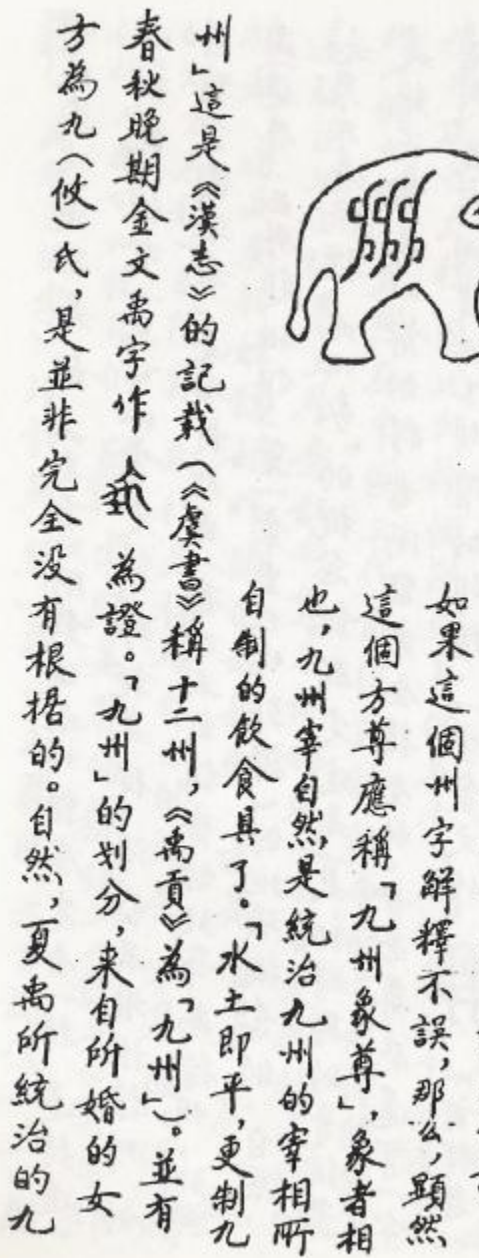 如果這個州字解釋不誤，那么，顯然
這個方尊應稱「九州象尊」，象者相
也，九州宰自然，是統治九州的宰相所
自制的飲食具了。「水土即平，更制九
州」這是《漢志》的記載（《虞書》稱十二州，《禹貢》為「九州」）。並有
春秋晚期金文禹字作 為證。「九州」的划分，来自所婚的女
方為九（攸）氏，是並非完全没有根据的。自然，夏禹所統治的九